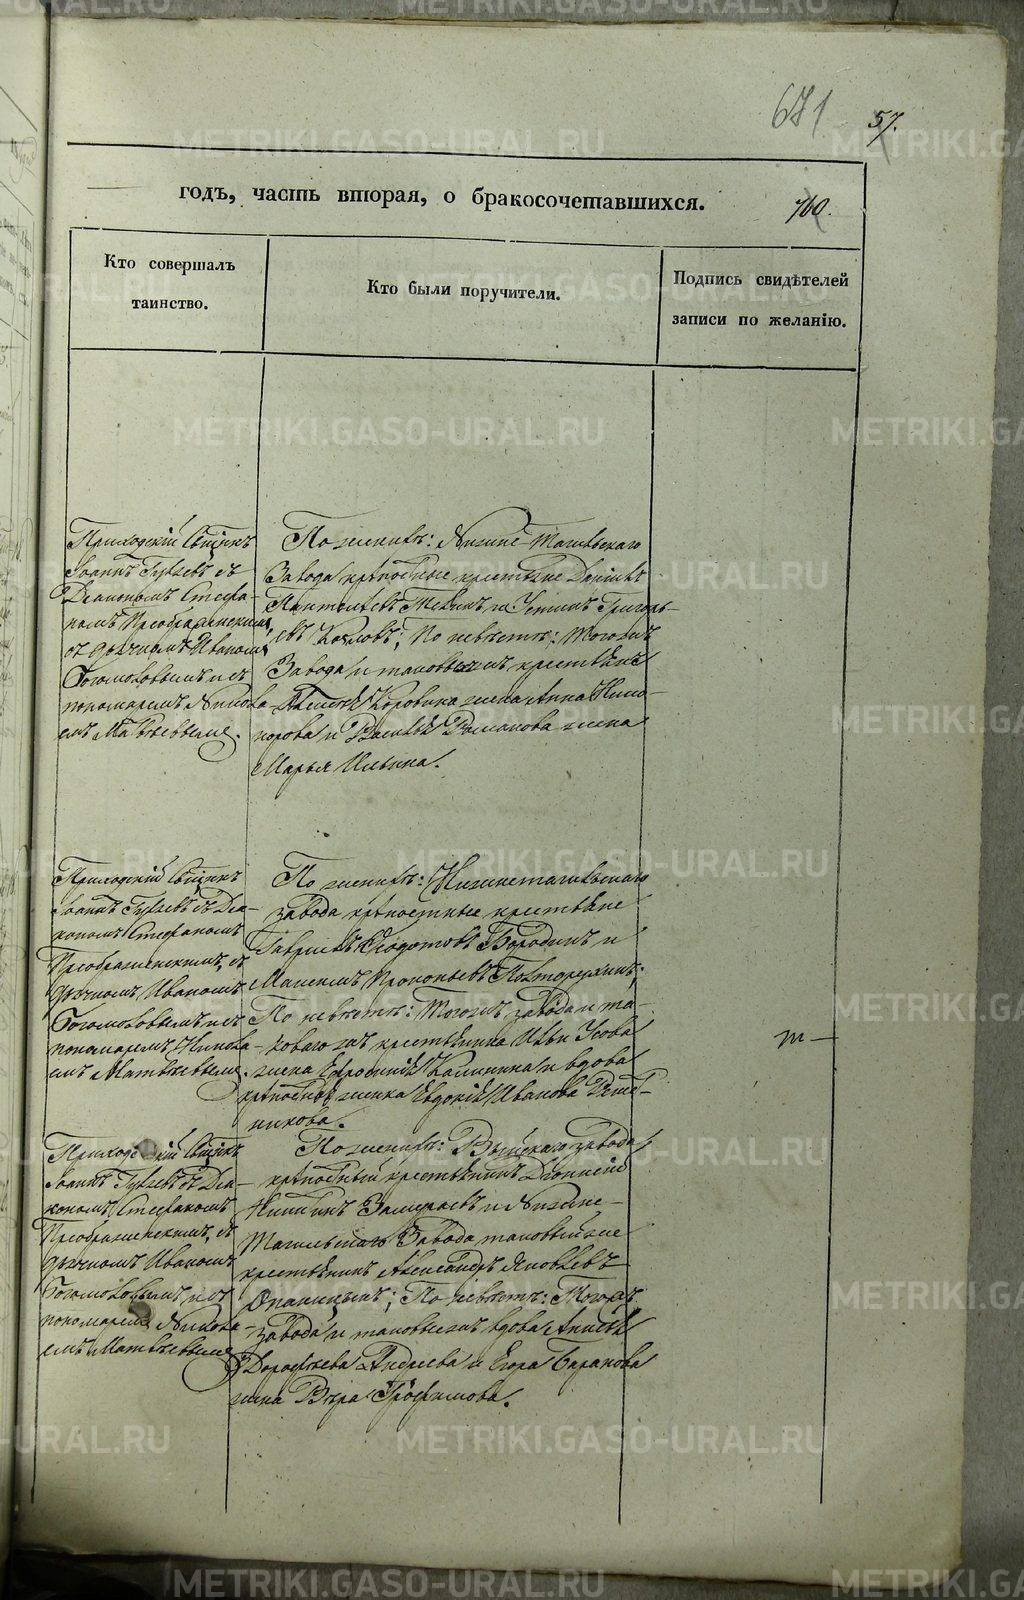 671
57.
годъ, часть вторая, о бракосочетавшихся.
760.
Кто совершалъ
таинство.
Кто были поручители.
Подпись свидѣтелей
записи по желанію.
Приходскій Свщнкъ
Іоаннъ Гуляевъ съ
Діакономъ Стефа-
номъ Преображенскимъ,
съ дьячкомъ Иваномъ
Богомоловымъ и съ
пономаремъ Никола-
емъ Матвѣевымъ.
По женихѣ: Нижне-Тагильскаго
Завода крѣпостные крестьяне Даніилъ
Пантелѣевъ и Устинъ Григорь-
евъ Козловъ; По невѣстѣ: Тогожъ
Завода и таковыхъ же крестьянъ
Алексѣя Коровина жена Анна Ники-
форова и Василія Романова жена
Марья Ильина.
Приходскій Свщнкъ
Іоаннъ Гуляевъ съ Діа-
кономъ Стефаномъ
Преображенскимъ, съ
дьячкомъ Иваномъ
Богомоловымъ и съ
пономаремъ Никола-
емъ Матвѣевымъ.
По женихѣ: Нижнетагильскаго
завода крѣпостные крестьяне
Гавріилъ Ѳедотовъ Бородинъ и
Максимъ Прокопьевъ;
По невѣстѣ: Тогожъ завода и та-
коваго жъ крестьянина Ильи Усова
жена Евфросинія Калинина и вдова
крѣпостная женка Евдокія Иванова Рѣшет-
никова.
т —
Приходскій Свщнкъ
Іоаннъ Гуляевъ съ Діа-
кономъ Стефаномъ
Преображенскимъ, съ
дьячкомъ Иваномъ
Богомоловымъ, и съ
пономаремъ Никола-
емъ Матвѣевымъ
По женихѣ: Выйскаго завода
крѣпостный крестьянинъ Діонисій
Никитинъ и Нижне-
Тагильскаго Завода таковый же
крестьянинъ Александръ Яковлевъ
По невѣстѣ: Тогожъ
завода и таковыхъ жъ вдова Анисья
Дорофѣева Андреева и Егора Баранова
жена Вѣра Трофимова.
METRIKI.GASO-URAL.RU